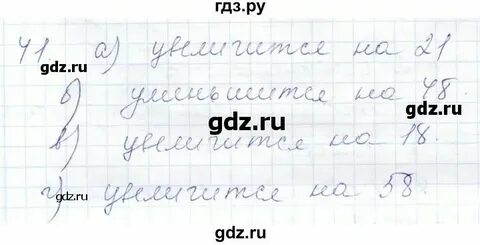 гдз.ру
41 а) увеличится на 21
gdz.ru gdz.ru
б) уменьшится на 48.
gdz.ru
в) увеличится на 18.
gdz.ru gdz.ru
г) увеличится на 58.
gdz.ru